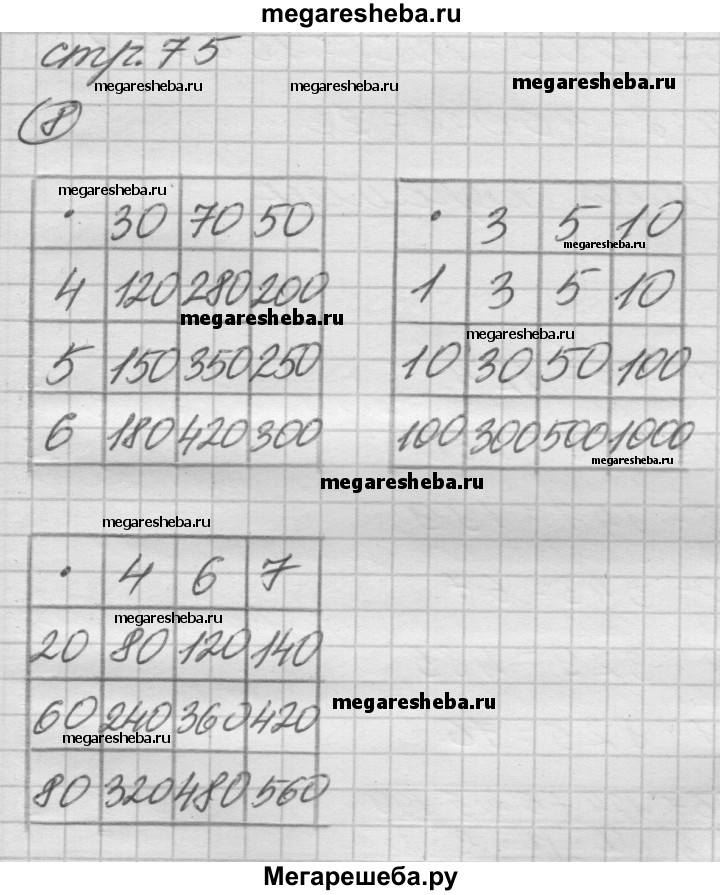 megaresheba.ru
стр. 75
megaresheba.ru megaresheba.ru megaresheba.ru
8
megaresheba.ru
· 30 70 50
4 120 280 200
megaresheba.ru
5 150 350 250
6 180 420 300
· 3 5 10
megaresheba.ru
1 3 5 10
megaresheba.ru
10 30 50 100
100 300 500 1000
megaresheba.ru
megaresheba.ru
megaresheba.ru
· 4 6 7
megaresheba.ru
20 80 120 140
60 240 360 420
megaresheba.ru
megaresheba.ru
80 320 480 560
Мегарешеба.ру